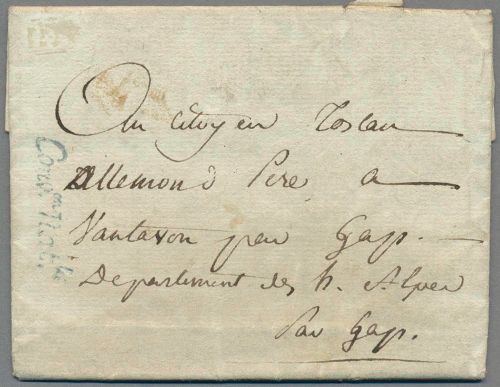 Au Citoyen Toslan
Allemond Pere a
Vantavon par Gap.
Departement des h. Alpes
Par Gap.